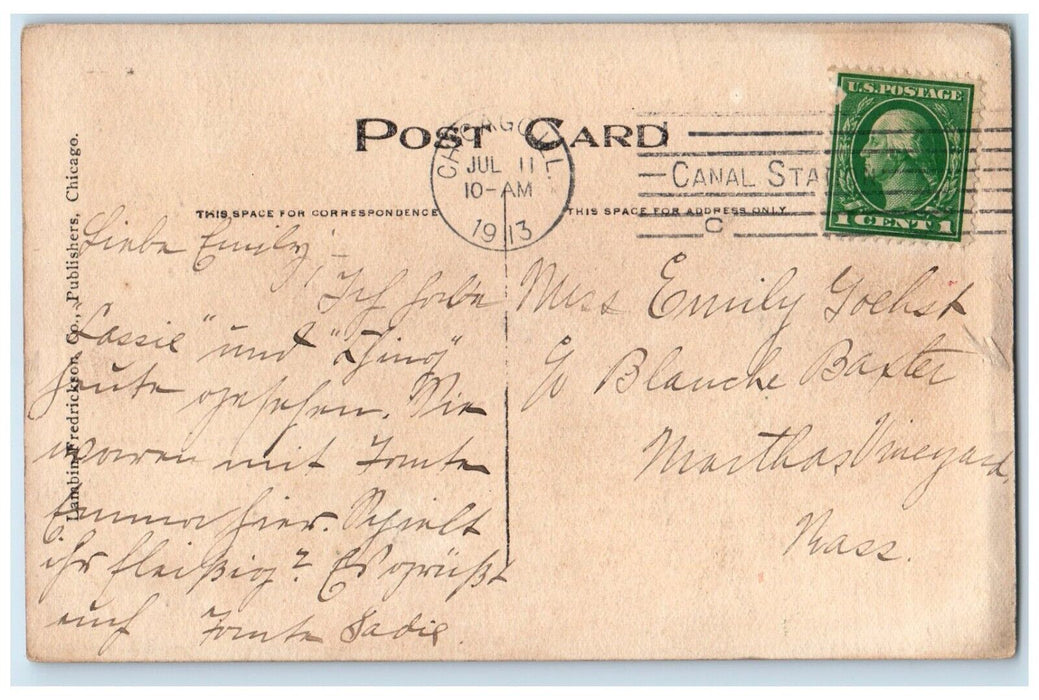 POST CARD
CHICAGO, ILL.
JUL 11
10-AM
1913
CANAL STA
C
U.S. POSTAGE
1 CENT 1
THIS SPACE FOR CORRESPONDENCE
THIS SPACE FOR ADDRESS ONLY
Lambin Fredrickson Co., Publishers, Chicago.
Liebe Emily!
Ich habe
"Lassie" und
heute gesehen. Wir
waren mit Tante
Emma hier. Spielt
ihr fleißig? Es grüßt
euch Tante Sadie.
Miss Emily Goehst
c/o Blanche Baxter
Marthas Vineyard,
Mass.